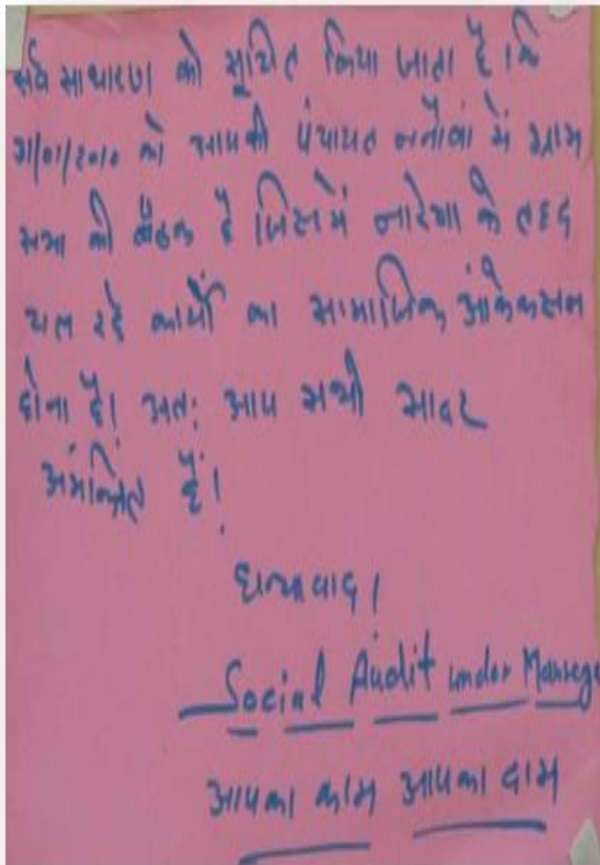 सर्व साधारण को सूचित किया जाता है। कि
31/01/2010 को आपकी पंचायत में ग्राम
सभा की बैठक है जिसमें नारेगा के तहद
चल रहे कार्यों का सामाजिक आंकेक्सन
होना है। अतः आप सभी सादर
अमंत्रित हैं।
धन्यावाद।
Social Audit under
आपका काम आपका दाम